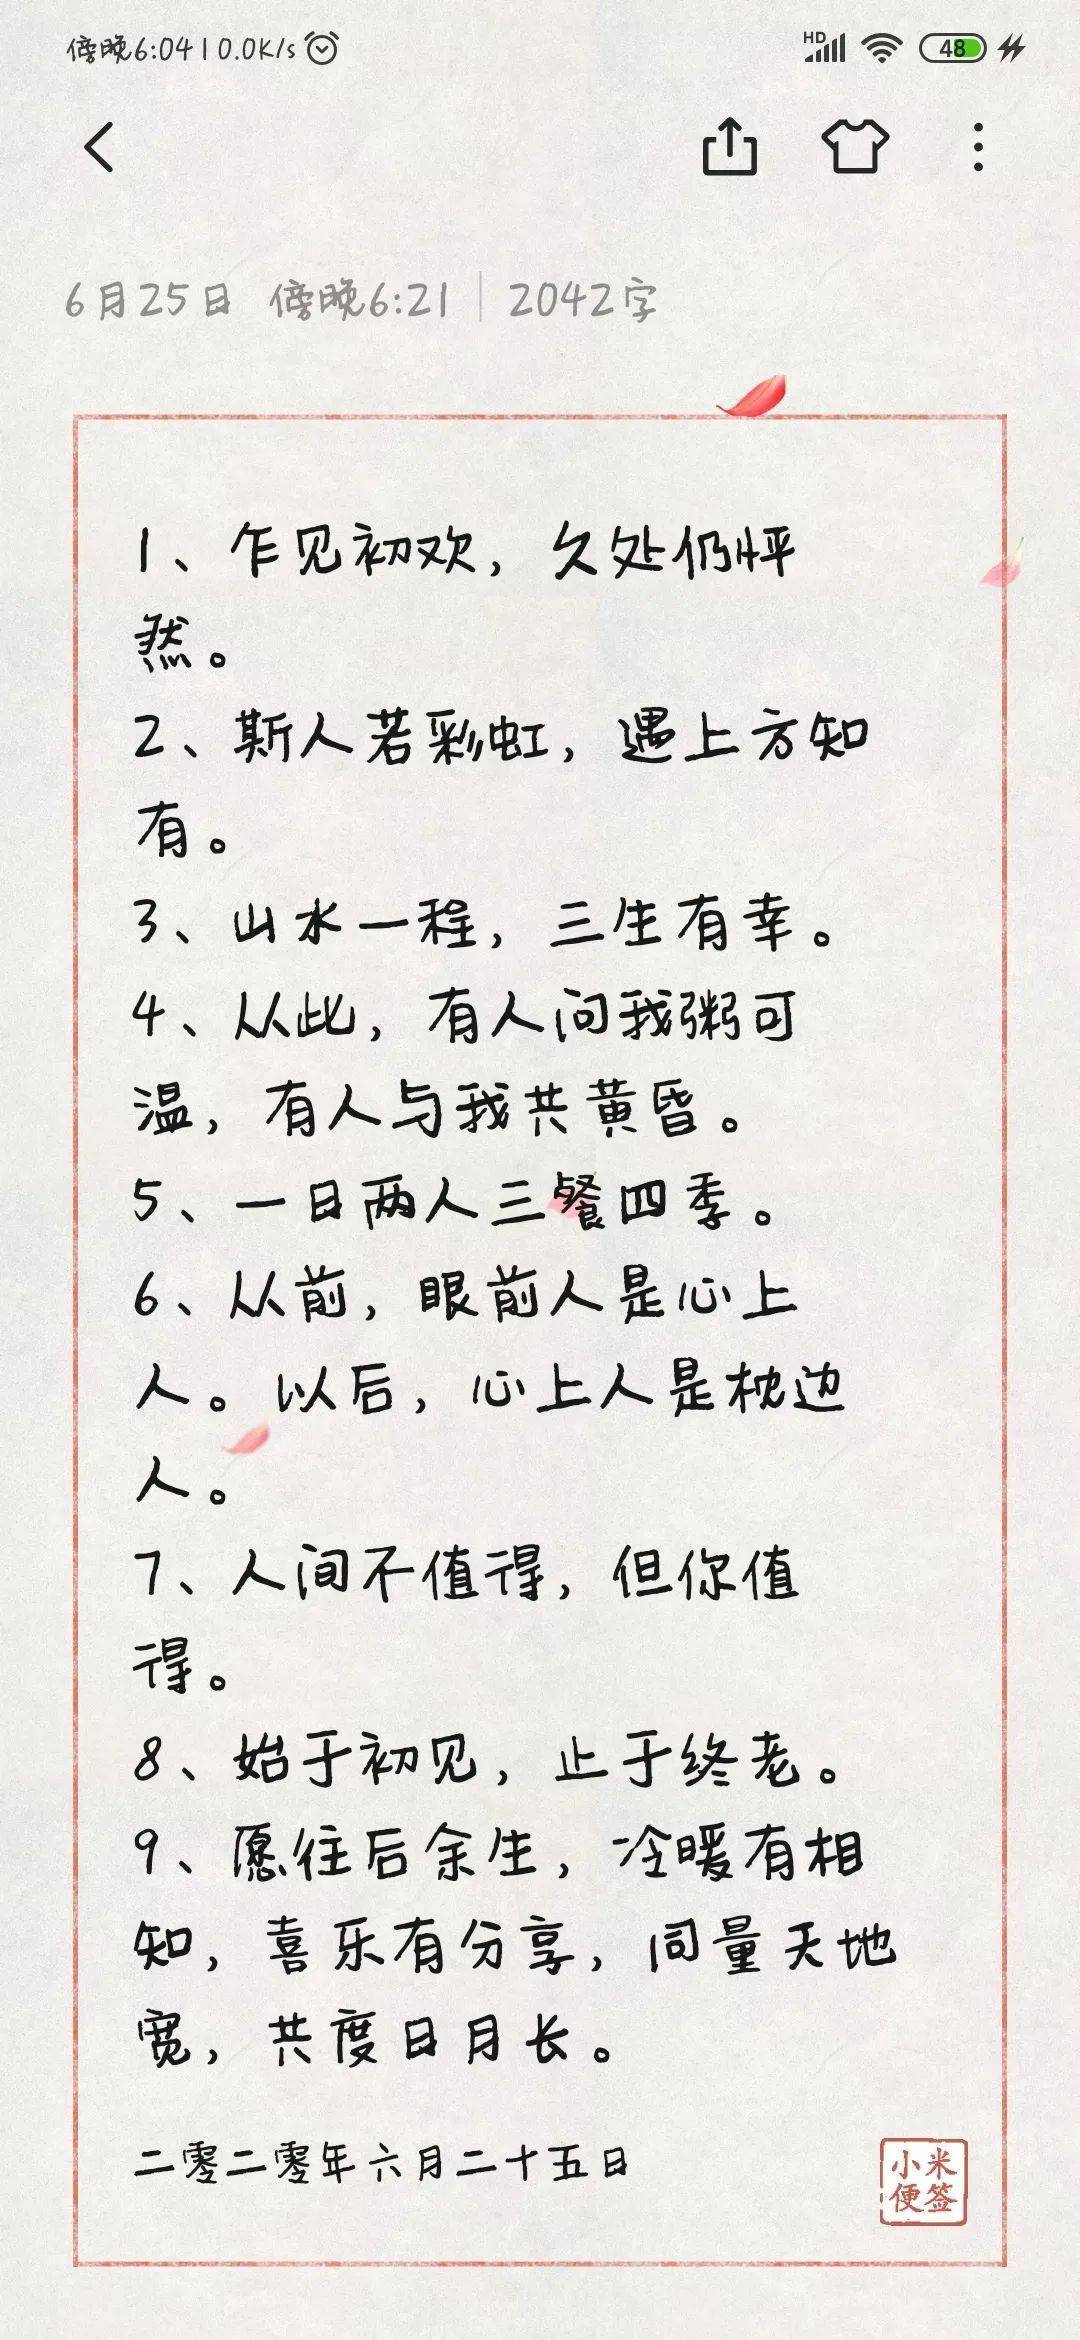 傍晚6:04 | 0.0K/s
HD 48
6月25日 傍晚6:21 | 2042字
1、乍见初欢，久处仍怦
然。
2、斯人若彩虹，遇上方知
有。
3、山水一程，三生有幸。
4、从此，有人问我粥可
温，有人与我共黄昏。
5、一日两人三餐四季。
6、从前，眼前人是心上
人。以后，心上人是枕边
人。
7、人间不值得，但你值
得。
8、始于初见，止于终老。
9、愿往后余生，冷暖有相
知，喜乐有分享，同量天地
宽，共度日月长。
二零二零年六月二十五日
小米
便签